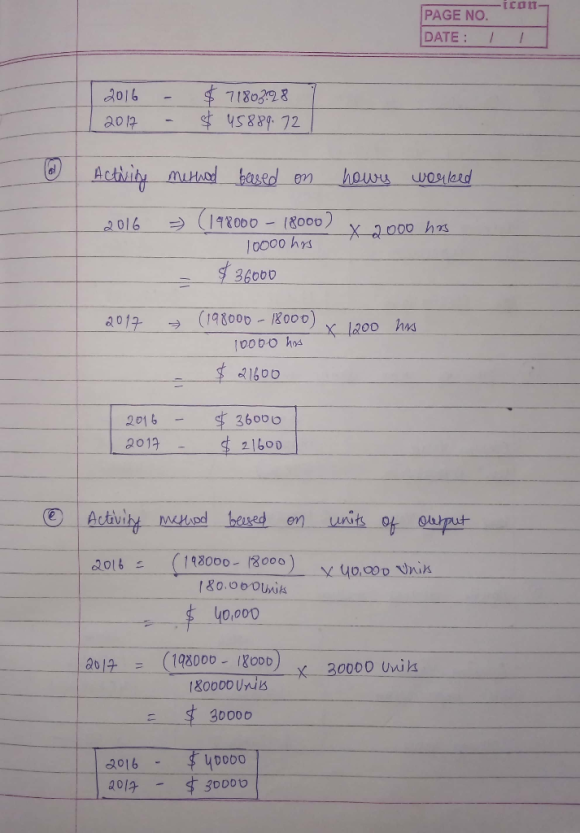 icon
PAGE NO.
DATE: / /
2016 - $ 71803.28
2017 - $ 45889.72
(d) Activity method based on hours worked
2016 ⇒ (198000 - 18000) / 10000 hrs × 2000 hrs
= $ 36000
2017 → (198000 - 18000) / 10000 hrs × 1200 hrs
= $ 21600
2016 - $ 36000
2017 - $ 21600
(e) Activity method based on units of output
2016 = (198000 - 18000) / 180.000 Units × 40,000 Units
= $ 40,000
2017 = (198000 - 18000) / 180000 Units × 30000 Units
= $ 30000
2016 - $ 40000
2017 - $ 30000